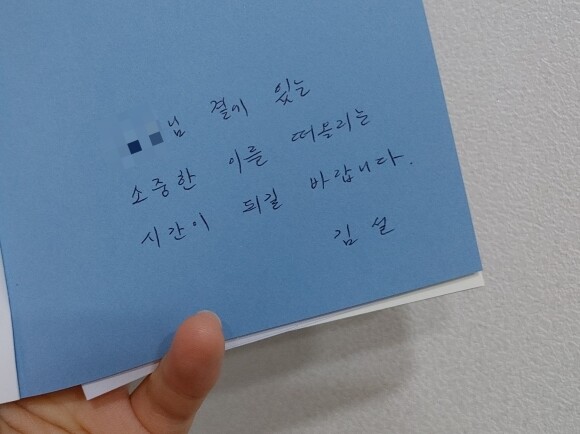 님 곁에 있는
소중한 이를 떠올리는
시간이 되길 바랍니다.
김 설